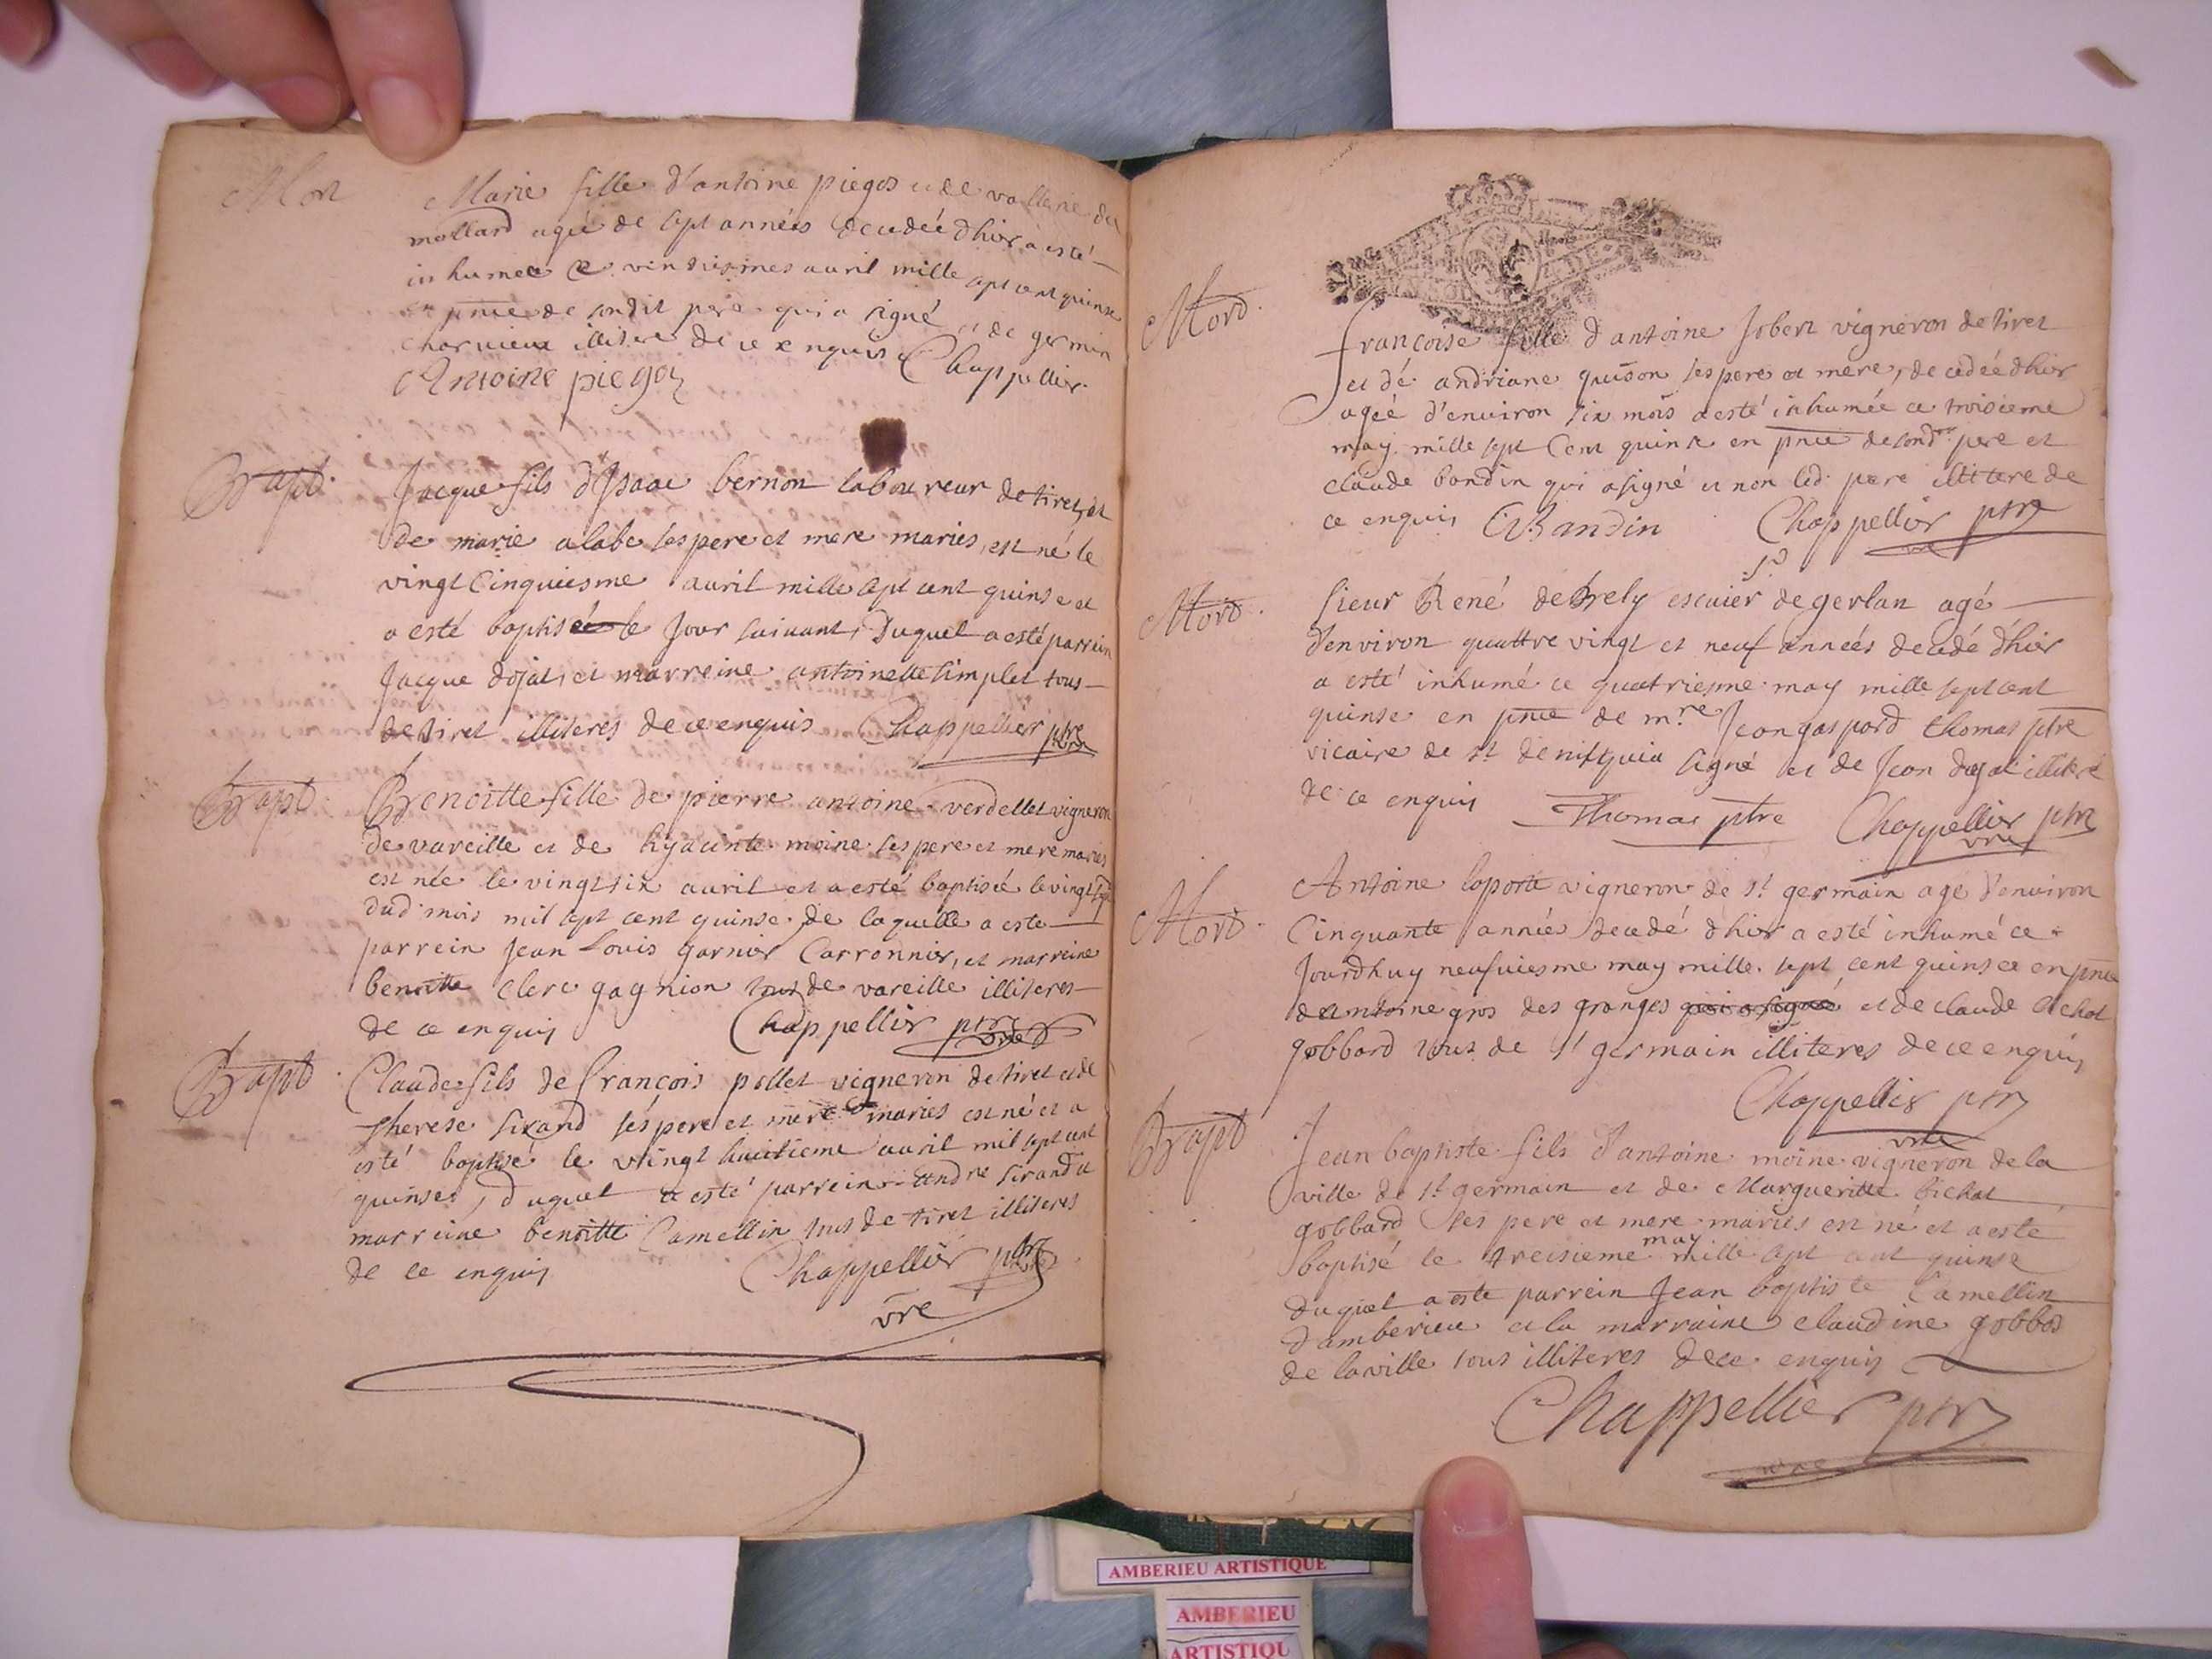 Mort
Marie fille d'antoine piegos et de
mollard agée de sept années decedée d'hier a esté
inhumée ce avril mille sept cent quinse
en pnce de sondit pere qui a signé et de germin
charvieux illitere de ce enquis Chappellier
Antoine piegoz
Bapt.
Jacque fils d'Isaac bernon laboureur de tiret et
de marie alabe ses pere et mere mariés, est né le
vingt Cinquiesme avril mille sept cent quinse et
a esté baptisé le jour suivant, Duquel a esté parrein
Jacque dojat, et marreine antoinette simplet tous
de tiret illiteres de ce enquis Chappellier ptre
Bapt.
Benoitte fille de pierre antoine verdellet vigneron
de vareille et de hyacinte moine ses pere et mere mariés
est née le vingt six avril et a esté baptisée le vingt sept
dud. mois mil sept cent quinse de laquelle a esté
parrein Jean Louis garnier Carronnier, et marreine
benoitte clerc gagnion tous de vareille illiteres
de ce enquis Chappellier ptre vre
Bapt.
Claude fils de francois pollet vigneron de tiret et de
therese sirand ses pere et mere mariés est né et a
esté baptisé le vingt huitieme avril mil sept cent
quinse, duquel a esté parrein andre sirand et
marreine benoitte Camellin tous de tiret illiteres
de ce enquis Chappellier ptre
vre
Mord.
françoise fille d'antoine Jobert vigneron de tiret
et de andriane quison ses pere et mere, decedée d'hier
agée d'environ six mois a esté inhumée ce troisieme
may mille sept Cent quinse en pnce de sond. pere et
claude bandin qui a signé et non led. pere illitere de
ce enquis CBandin Chappellier ptre
vre
Mord.
Sieur René deBrely escuier sr degerlan agé
d'environ quattre vingt et neuf années decedé d'hier
a esté inhumé ce quatriesme may mille sept cent
quinse en pnce de mre Jean gaspard thomas ptre
vicaire de st denis qui a signé et de Jean dojat illitere
de ce enquis Thomas ptre Chappellier ptre
vre
Mord.
Antoine laporte vigneron de st germain agé d'environ
Cinquante années decedé d'hier a esté inhumé ce
Jourdhuy neufviesme may mille sept cent quinse en pnce
d'antoine gros des granges qui a signé et de claude bichat
gobbard tous de st germain illiteres de ce enquis
Chappellier ptre
vre
Bapt
Jean baptiste fils d'antoine moine vigneron de la
ville de st germain et de Margueritte bichat
gobbard ses pere et mere mariés est né et a esté
baptisé le treisieme may mille sept cent quinse
duquel a esté parrein Jean baptiste Camellin
d'amberieu et la marraine claudine gobbod
de la ville tous illiteres de ce enquis
Chappellier ptre
vre
AMBERIEU ARTISTIQUE
AMBERIEU
ARTISTIQU